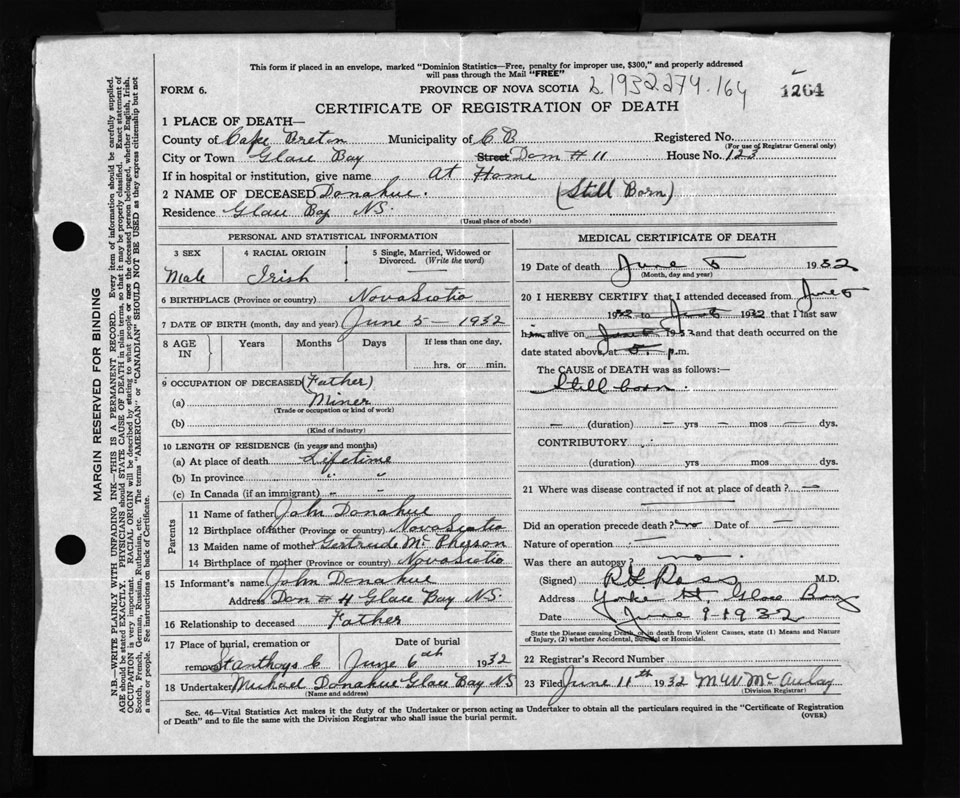 This form if placed in an envelope, marked "Dominion Statistics—Free, penalty for improper use, $300," and properly addressed
will pass through the Mail "FREE"
FORM 6. PROVINCE OF NOVA SCOTIA 1932.274.164 1264
CERTIFICATE OF REGISTRATION OF DEATH
1 PLACE OF DEATH—
County of Cape Breton Municipality of C B Registered No.
(For use of Registrar General only)
City or Town Glace Bay Street Dom # 11 House No. 123
If in hospital or institution, give name at Home
2 NAME OF DECEASED Donahue. (Still Born)
Residence Glace Bay NS.
(Usual place of abode)
PERSONAL AND STATISTICAL INFORMATION
3 SEX 4 RACIAL ORIGIN 5 Single, Married, Widowed or
Divorced. (Write the word)
Male Irish
6 BIRTHPLACE (Province or country) Nova Scotia
7 DATE OF BIRTH (month, day and year) June 5 - 1932
8 AGE IN Years Months Days If less than one day,
hrs. or min.
9 OCCUPATION OF DECEASED (Father)
(a) Miner
(Trade or occupation or kind of work)
(b)
(Kind of industry)
10 LENGTH OF RESIDENCE (in years and months)
(a) At place of death Lifetime
(b) In province " "
(c) In Canada (if an immigrant) - -
Parents
11 Name of father John Donahue
12 Birthplace of father (Province or country) Nova Scotia
13 Maiden name of mother Gertrude McPherson
14 Birthplace of mother (Province or country) Nova Scotia
15 Informant's name John Donahue
Address Dom # 11 Glace Bay NS.
16 Relationship to deceased Father
17 Place of burial, cremation or Date of burial
removal St Anthoys C June 6th 1932
18 Undertaker Michael Donahue Glace Bay NS
(Name and address)
MEDICAL CERTIFICATE OF DEATH
19 Date of death June 5 1932
(Month, day and year)
20 I HEREBY CERTIFY that I attended deceased from June 5
1932 to June 5 1932 that I last saw
him alive on June 5 1932 and that death occurred on the
date stated above, at 5 p.m.
The CAUSE of DEATH was as follows:—
Still born.
— (duration) — yrs — mos — dys.
CONTRIBUTORY
(duration) yrs mos dys.
21 Where was disease contracted if not at place of death? —
Did an operation precede death? no Date of —
Nature of operation —
Was there an autopsy? no.
(Signed) Ross M.D.
Address Yorke St. Glace Bay
Date June 9-1932
State the Disease causing Death, or in death from Violent Causes, state (1) Means and Nature
of Injury, (2) whether Accidental, Suicidal or Homicidal.
22 Registrar's Record Number
23 Filed June 11th 1932 M W McAulay
(Division Registrar)
Sec. 46—Vital Statistics Act makes it the duty of the Undertaker or person acting as Undertaker to obtain all the particulars required in the "Certificate of Registration
of Death" and to file the same with the Division Registrar who shall issue the burial permit. (OVER)
MARGIN RESERVED FOR BINDING
N.B.—WRITE PLAINLY WITH UNFADING INK—THIS IS A PERMANENT RECORD. Every item of information should be carefully supplied.
AGE should be stated EXACTLY. PHYSICIANS should STATE CAUSE OF DEATH in plain terms, so that it may be properly classified. Exact statement of
OCCUPATION is very important. RACIAL ORIGIN will be described by stating to what people or race the deceased person belonged, whether English, Irish,
Scotch, French, German, Russian, Ruthenian, etc. The terms "AMERICAN" or "CANADIAN" SHOULD NOT BE USED as they express citizenship but not
a race or people. See instructions on back of Certificate.